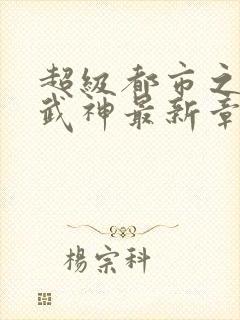 超級都市之
武神最新章
楊宗科